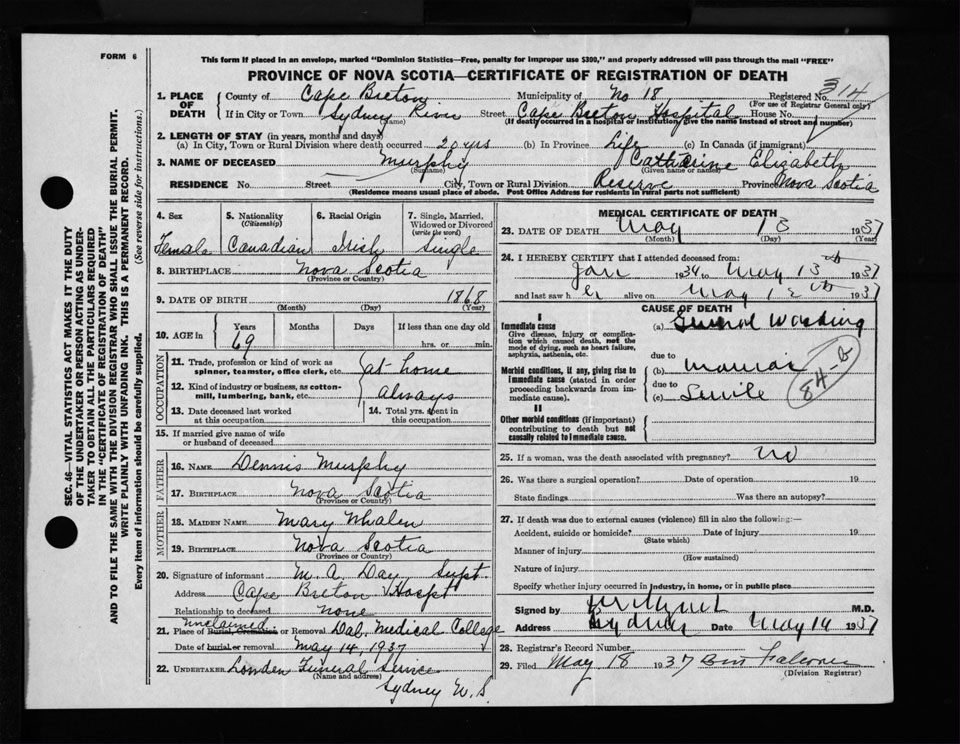 FORM 6
This form if placed in an envelope, marked "Dominion Statistics—Free, penalty for improper use $300," and properly addressed will pass through the mail "FREE"
PROVINCE OF NOVA SCOTIA—CERTIFICATE OF REGISTRATION OF DEATH
SEC. 46—VITAL STATISTICS ACT MAKES IT THE DUTY
OF THE UNDERTAKER OR PERSON ACTING AS UNDER-
TAKER TO OBTAIN ALL THE PARTICULARS REQUIRED
IN THE "CERTIFICATE OF REGISTRATION OF DEATH"
AND TO FILE THE SAME WITH THE DIVISION REGISTRAR WHO SHALL ISSUE THE BURIAL PERMIT.
WRITE PLAINLY WITH UNFADING INK. THIS IS A PERMANENT RECORD.
Every item of information should be carefully supplied. (See reverse side for instructions.)
1. PLACE OF DEATH County of Cape Breton Municipality of No 18 Registered No. 314
(For use of Registrar General only)
If in City or Town Sydney River Street Cape Breton Hospital House No.
(Name) (If death occurred in a hospital or institution, give the name instead of street and number)
2. LENGTH OF STAY (in years, months and days)
(a) In City, Town or Rural Division where death occurred 20 yrs (b) In Province Life (c) In Canada (if immigrant)
3. NAME OF DECEASED Murphy Catharine Elizabeth
(Surname) (Given name or names)
RESIDENCE No. Street City, Town or Rural Division Reserve Province Nova Scotia
(Residence means usual place of abode. Post Office Address for residents in rural parts not sufficient)
4. Sex 5. Nationality (Citizenship) 6. Racial Origin 7. Single, Married, Widowed or Divorced (write the word)
Female Canadian Irish Single
8. BIRTHPLACE Nova Scotia
(Province or Country)
9. DATE OF BIRTH 1868
(Month) (Day) (Year)
10. AGE in Years Months Days If less than one day old
69 hrs. or min.
OCCUPATION
11. Trade, profession or kind of work as spinner, teamster, office clerk, etc. at home
12. Kind of industry or business, as cotton-mill, lumbering, bank, etc. always
13. Date deceased last worked at this occupation 14. Total yrs. spent in this occupation
15. If married give name of wife or husband of deceased
FATHER
16. NAME Dennis Murphy
17. BIRTHPLACE Nova Scotia
(Province or Country)
MOTHER
18. MAIDEN NAME Mary Whalen
19. BIRTHPLACE Nova Scotia
(Province or Country)
20. Signature of informant M. A. Day Supt.
Address Cape Breton Hospt
Relationship to deceased none
unclaimed
21. Place of Burial, Cremation or Removal Dal. Medical College
Date of burial or removal May 14, 1937
22. UNDERTAKER Lowden Funeral Service
(Name and address)
Sydney N. S.
MEDICAL CERTIFICATE OF DEATH
23. DATE OF DEATH May 13 1937
(Month) (Day) (Year)
24. I HEREBY CERTIFY that I attended deceased from:
Jan 1934 to May 13th 1937
and last saw her alive on May 12th 1937
CAUSE OF DEATH
I
Immediate cause (a) General Wasting
Give disease, injury or complication which caused death, not the mode of dying, such as heart failure, asphyxia, asthenia, etc.
due to
Morbid conditions, if any, giving rise to immediate cause (stated in order proceeding backwards from immediate cause). (b)
due to
(c) Senile
84-B
II
Other morbid conditions (if important) contributing to death but not causally related to immediate cause.
25. If a woman, was the death associated with pregnancy? no
26. Was there a surgical operation? Date of operation 19
State findings Was there an autopsy?
27. If death was due to external causes (violence) fill in also the following:—
Accident, suicide or homicide? Date of injury 19
(State which)
Manner of injury
(How sustained)
Nature of injury
Specify whether injury occurred in industry, in home, or in public place
Signed by M.D.
Address Sydney Date May 14 1937
28. Registrar's Record Number
29. Filed May 18 1937 Falconer
(Division Registrar)